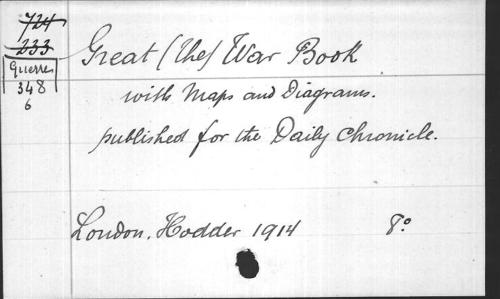 724
233
Guerres
348
6
Great (The) War Book
with Maps and Diagrams.
published for the Daily Chronicle.
London, Hodder 1914 8°